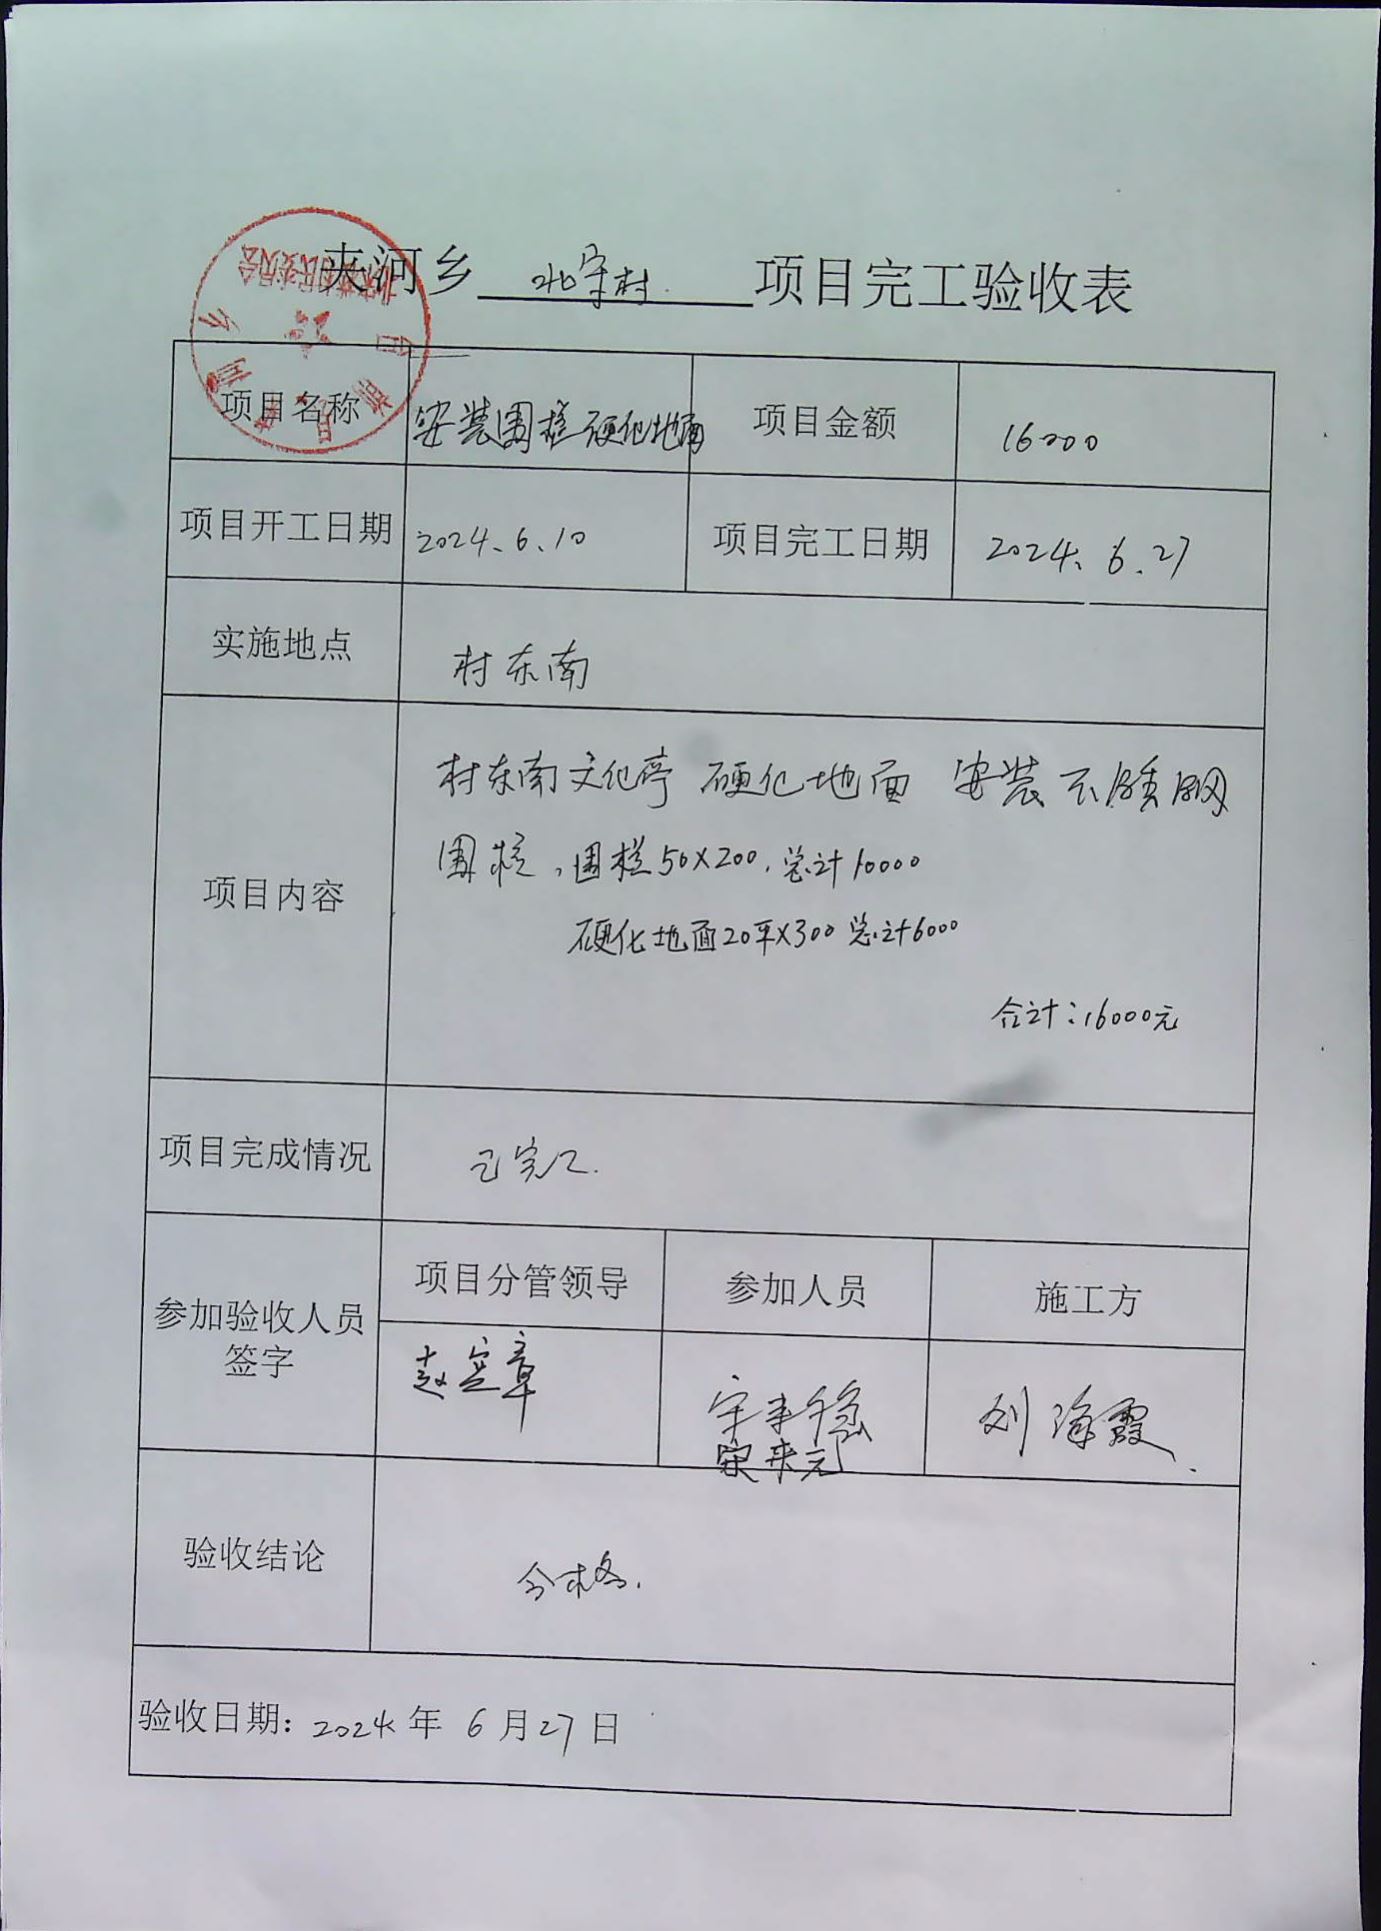 夹河乡 北宋村 项目完工验收表
项目名称 安装围栏硬化地面 项目金额 16000
项目开工日期 2024.6.10 项目完工日期 2024.6.27
实施地点 村东南
项目内容
村东南文化亭 硬化地面 安装不锈钢
围栏,围栏50X200,总计10000
硬化地面20平X300总计6000
合计:16000元
项目完成情况 已完工.
参加验收人员
签字
项目分管领导 参加人员 施工方
赵宝章
宋来元
刘海霞
验收结论 合格.
验收日期: 2024年 6月27日